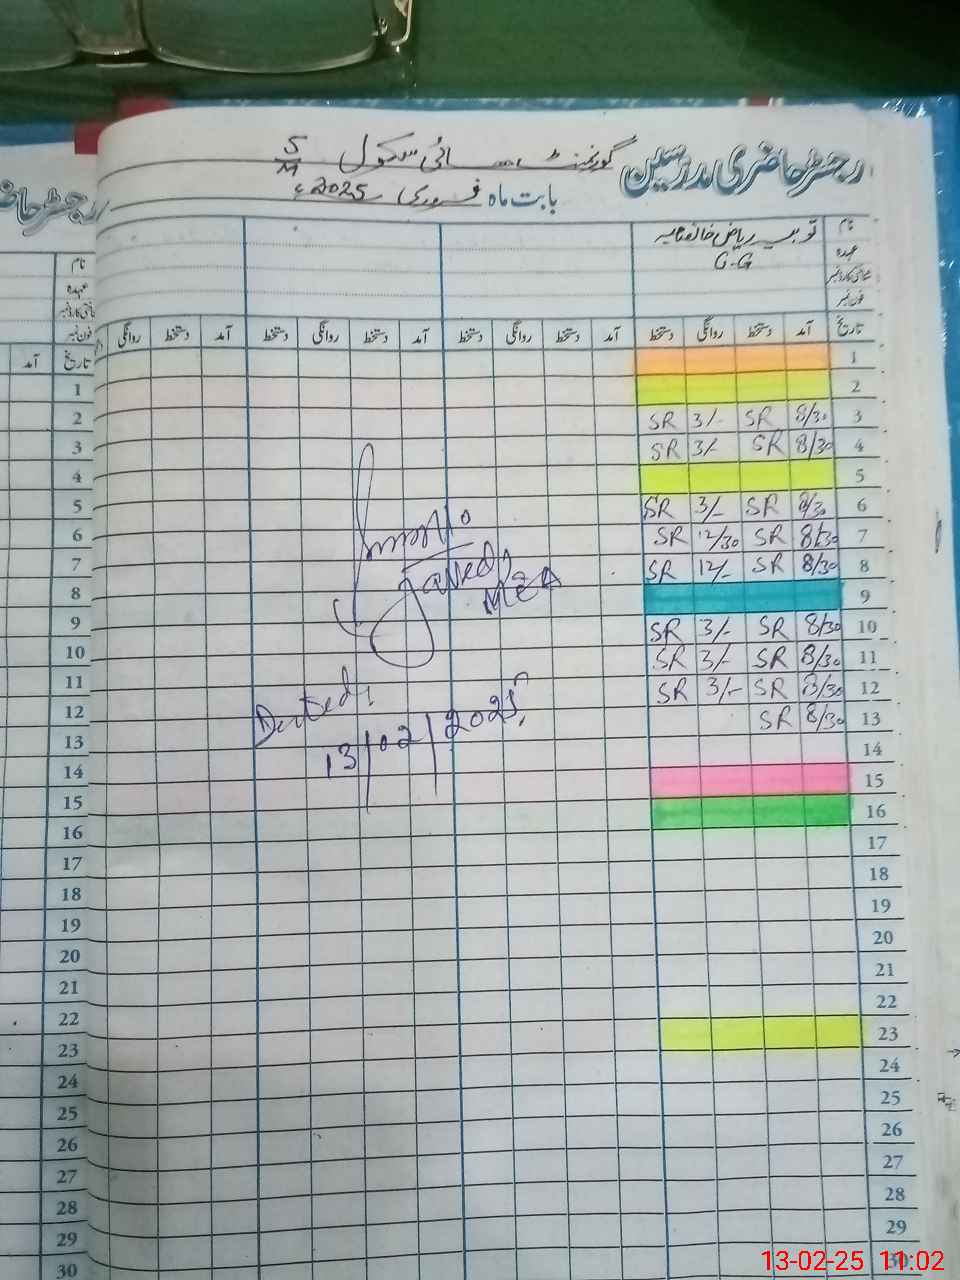 رجسٹر حاضری مدرسین گورنمنٹ ہائی سکول S/M
بابت ماہ فروری 2025ء
نام ثوبیہ ریاض
عہدہ C.G
شناختی کارڈ نمبر
فون نمبر
تاریخ آمد دستخط روانگی دستخط آمد دستخط روانگی دستخط آمد دستخط روانگی
1
2
3 8/30 SR 3/- SR
4 8/30 SR 3/- SR
5
6 8/30 SR 3/- SR
7 8/30 SR 12/30 SR
8 8/30 SR 12/- SR
9
10 8/30 SR 3/- SR
11 8/30 SR 3/- SR
12 8/30 SR 3/- SR
13 8/30 SR
14
15
16
17
18
19
20
21
22
23
24
25
26
27
28
29
30
Javed
MEA
Dated
13/02/2025
رجسٹر حا
نام
عہدہ
فون نمبر
تاریخ آمد
1
2
3
4
5
6
7
8
9
10
11
12
13
14
15
16
17
18
19
20
21
22
23
24
25
26
27
28
29
30
13-02-25 11:02